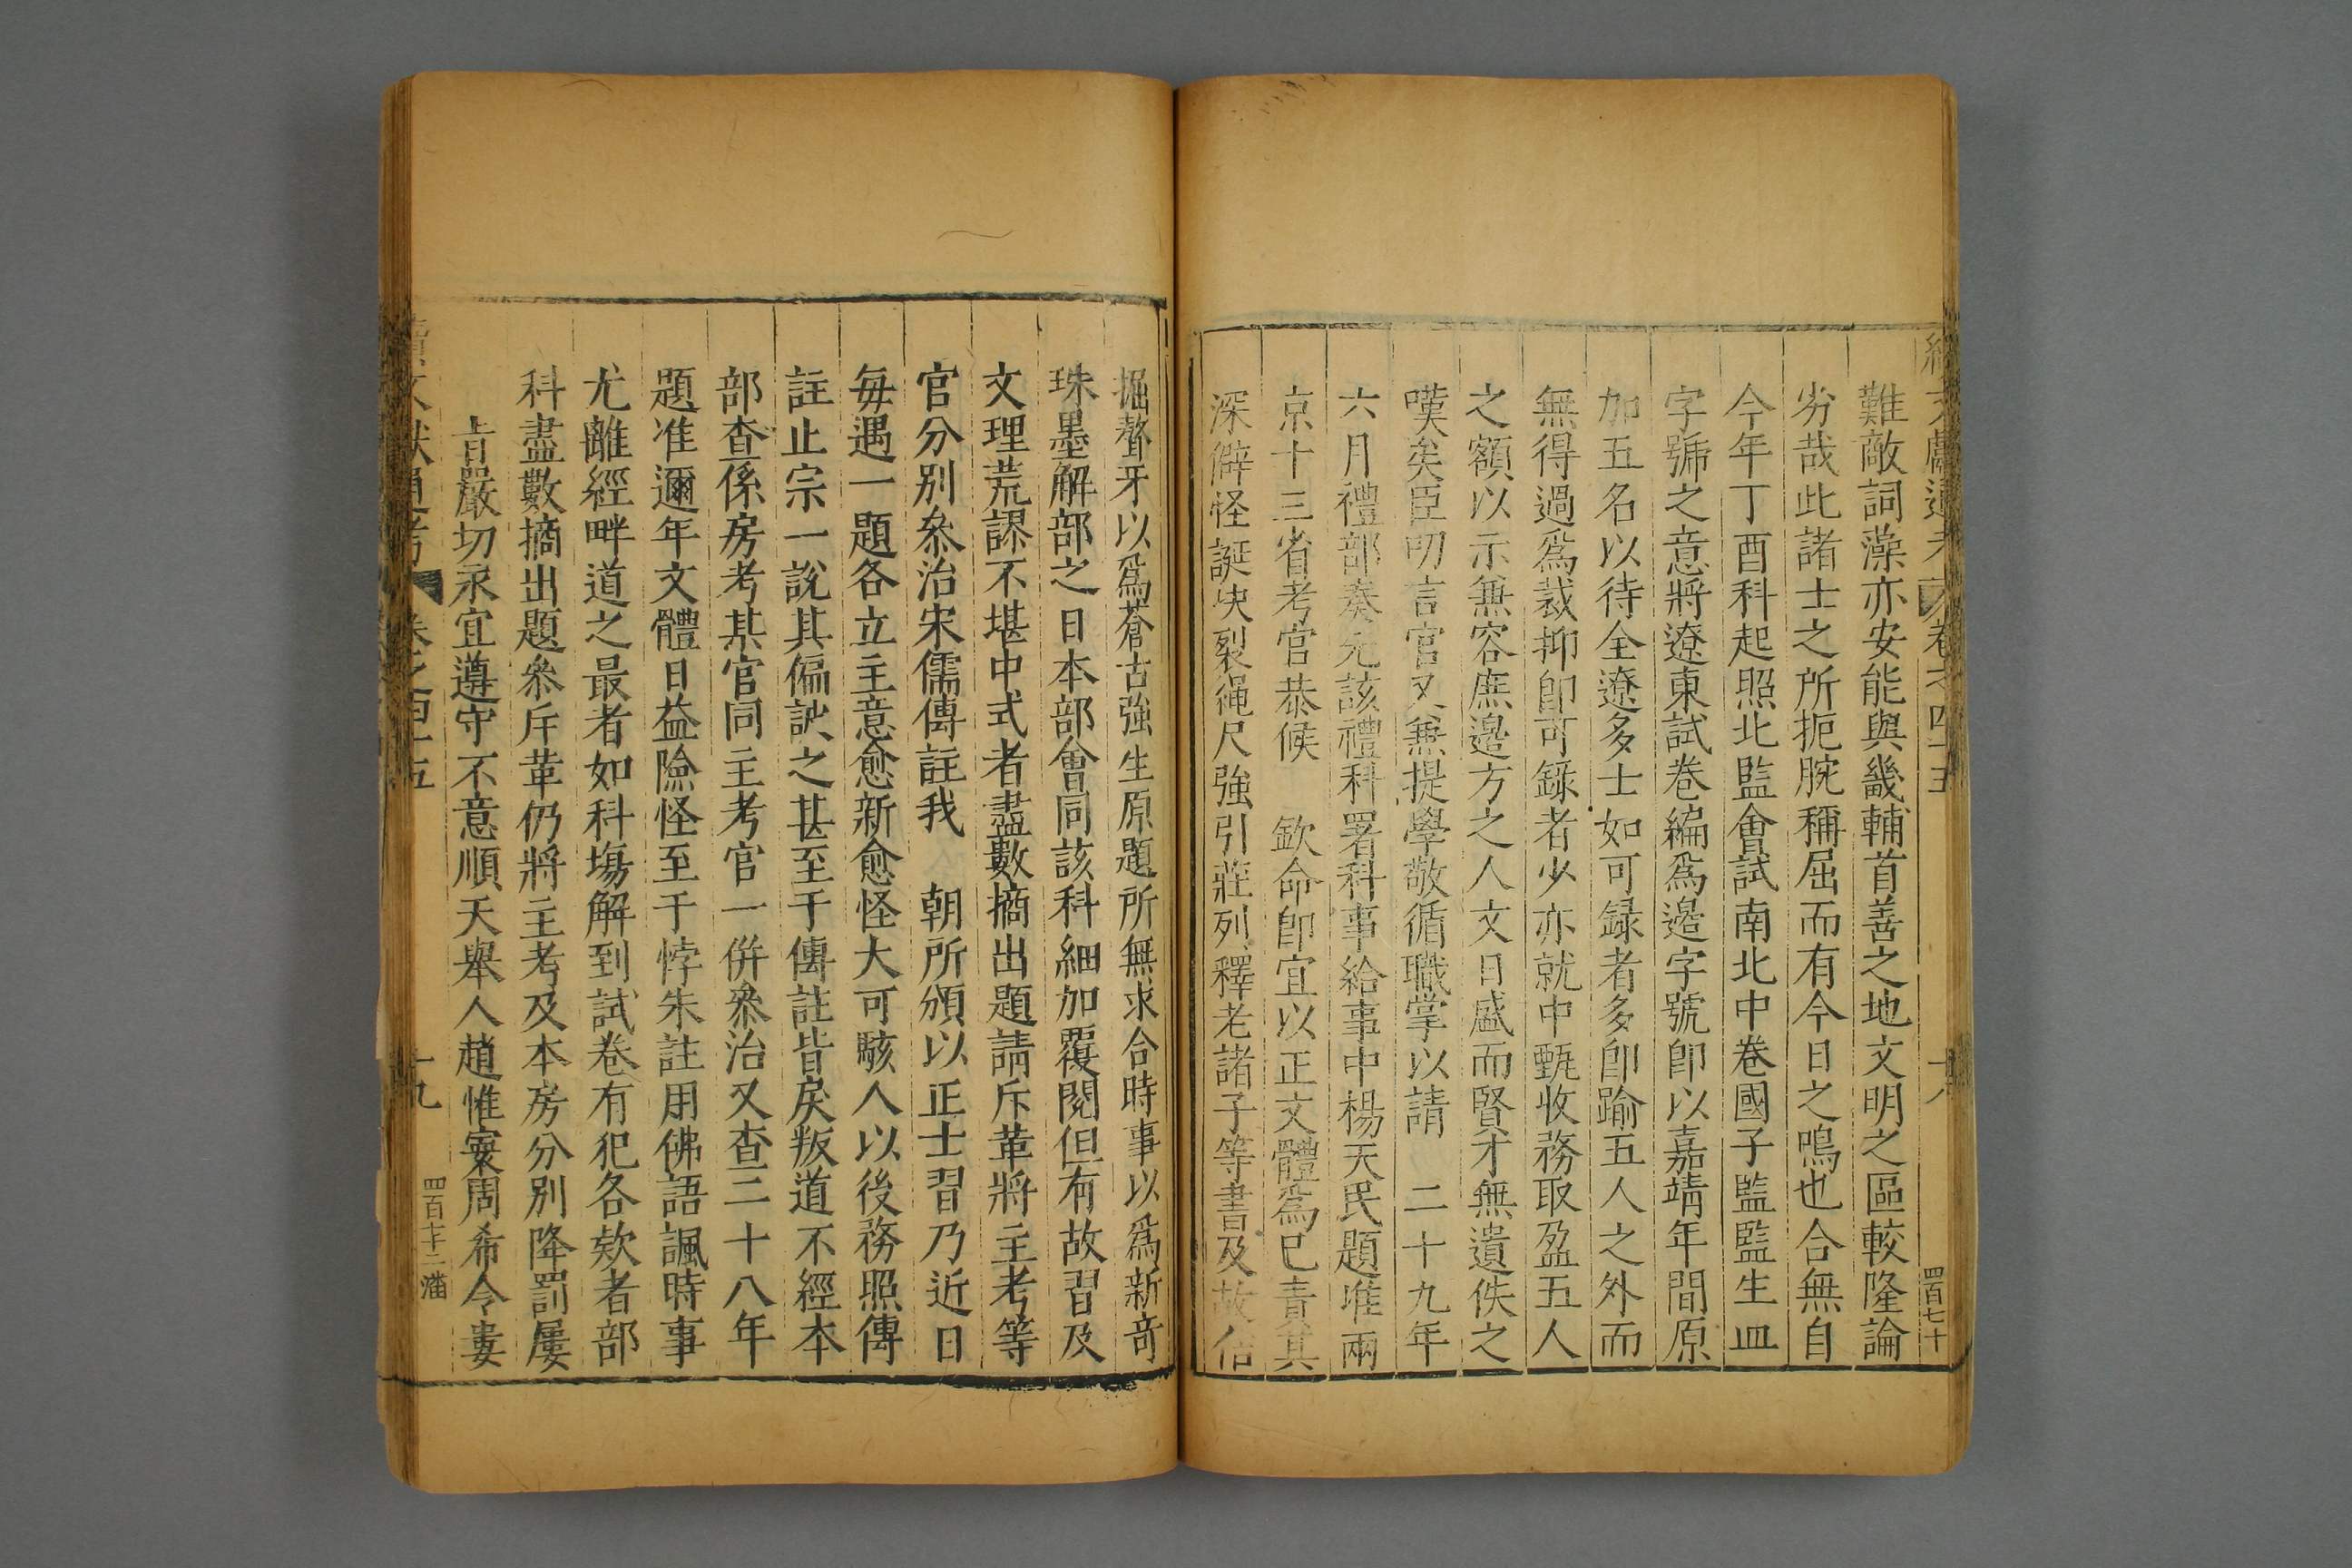 續文獻通考 卷之四十五 十八 四百七十
難敵詞藻亦安能與畿輔首善之地文明之區較隆論
劣哉此諸士之所扼腕稱屈而有今日之鳴也合無自
今年丁酉科起照北監會試南北中卷國子監監生皿
字號之意將遼東試卷編爲邉字號卽以嘉靖年間原
加五名以待全遼多士如可録者多卽踰五人之外而
無得過爲裁抑卽可録者少亦就中甄收務取盈五人
之額以示無容庶邉方之人文日盛而賢才無遺佚之
嘆矣臣叨言官又兼提學敬循職掌以請 二十九年
六月禮部奏允該禮科署科事給事中楊天民題准兩
京十三省考官恭候 欽命卽宜以正文體爲巳責其
深僻怪誕决裂繩尺強引莊列釋老諸子等書及故佶
掘聱牙以爲蒼古強生原題所無求合時事以爲新奇
珠墨解部之日本部會同該科細加覆閱但有故習及
文理荒謬不堪中式者盡數摘出題請斥革將主考等
官分别叅治宋儒傳註我 朝所頒以正士習乃近日
毎遇一題各立主意愈新愈怪大可駭人以後務照傳
註止宗一說其偏詖之甚至于傳註皆戾叛道不經本
部查係房考某官同主考官一併叅治又查二十八年
題准邇年文體日益險怪至于悖朱註用佛語諷時事
尤離經畔道之最者如科塲解到試卷有犯各欵者部
科盡數摘出題叅斥革仍將主考及本房分别降罰屢
旨嚴切永宜遵守不意順天舉人趙惟寰周希令婁
續文獻通考 卷之四十五 十九 四百七十二 潘